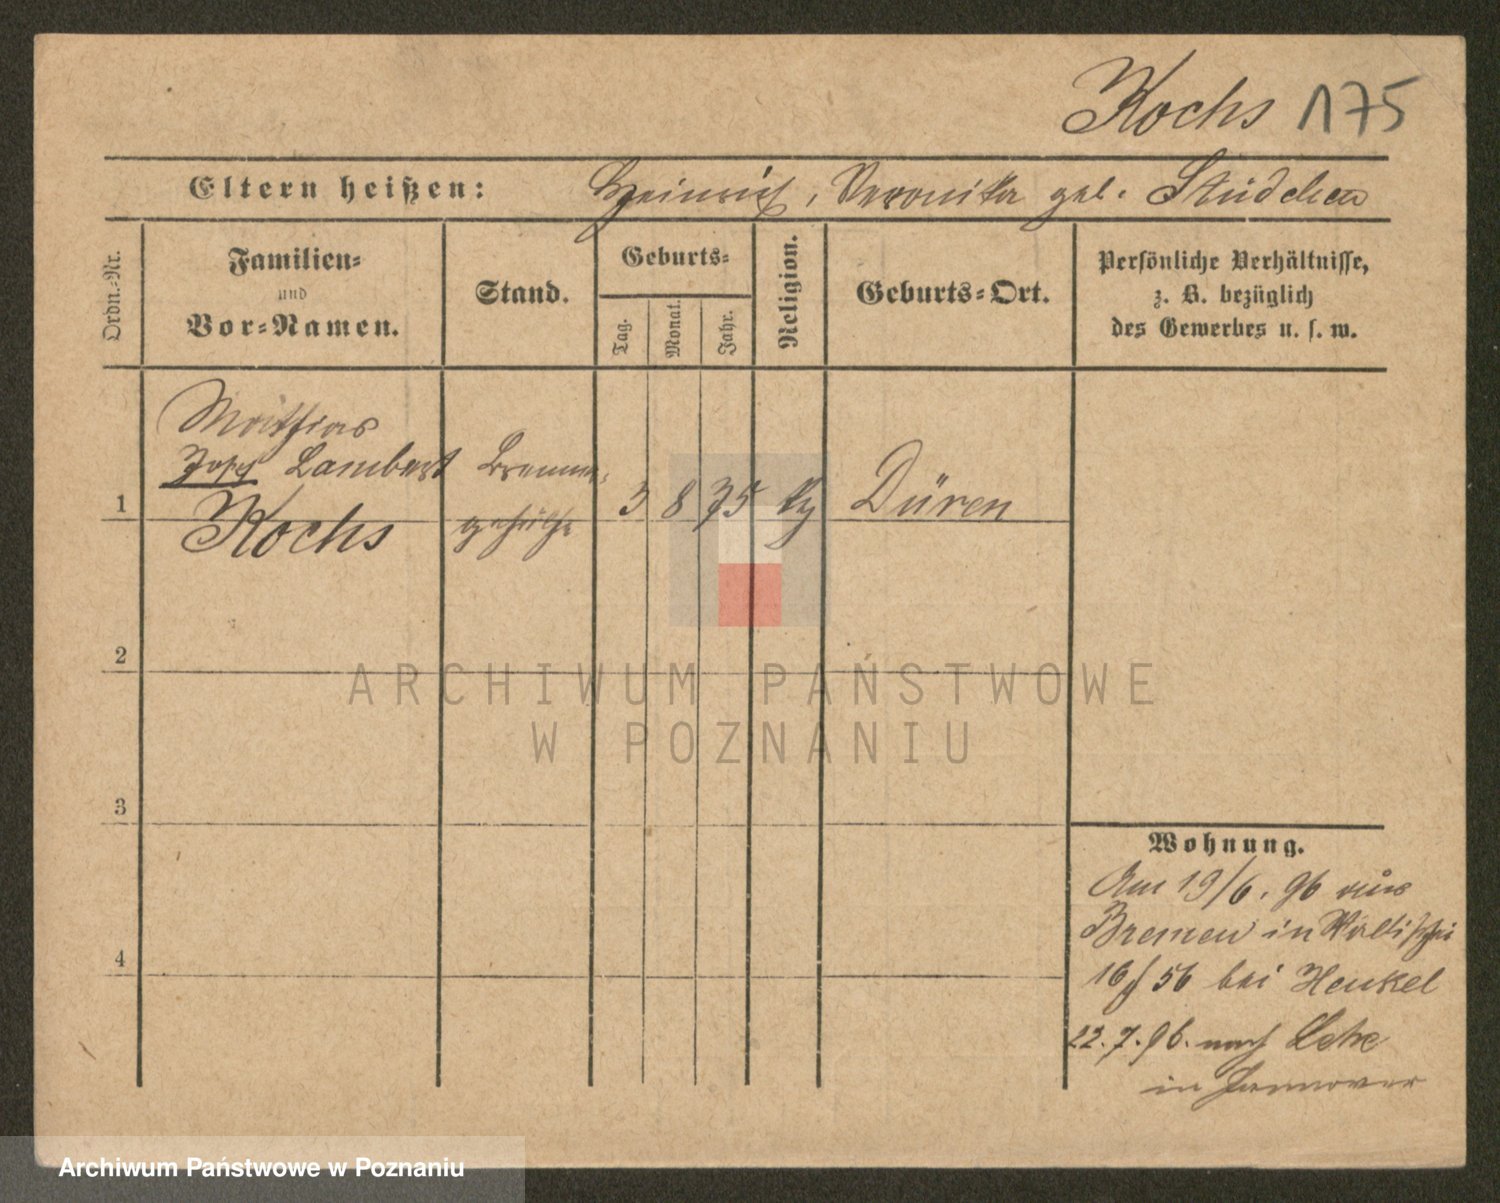 Kochs 175
Eltern heißen: Heinrich, Veronika geb. Stüdchen
Ordn.-Nr.
Familien-
und
Vor-Namen.
Stand.
Geburts-
Tag.
Monat.
Jahr.
Religion.
Geburts-Ort.
Persönliche Verhältnisse,
z. B. bezüglich
des Gewerbes u. s. w.
Mathias
Josef Lambert
Kochs
gehülfe
1
3 8 75
Düren
2
ARCHIWUM PAŃSTWOWE
W POZNANIU
3
4
Wohnung.
Am 19/6. 96 aus
Bremen in Wallischei
16/56 bei Henkel
22.7.96. nach
in Hannover
Archiwum Państwowe w Poznaniu